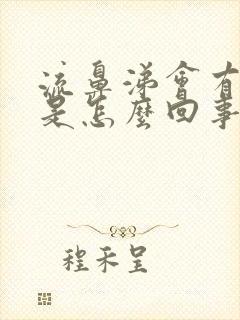 流鼻涕會有
是怎麼回事
程禾呈